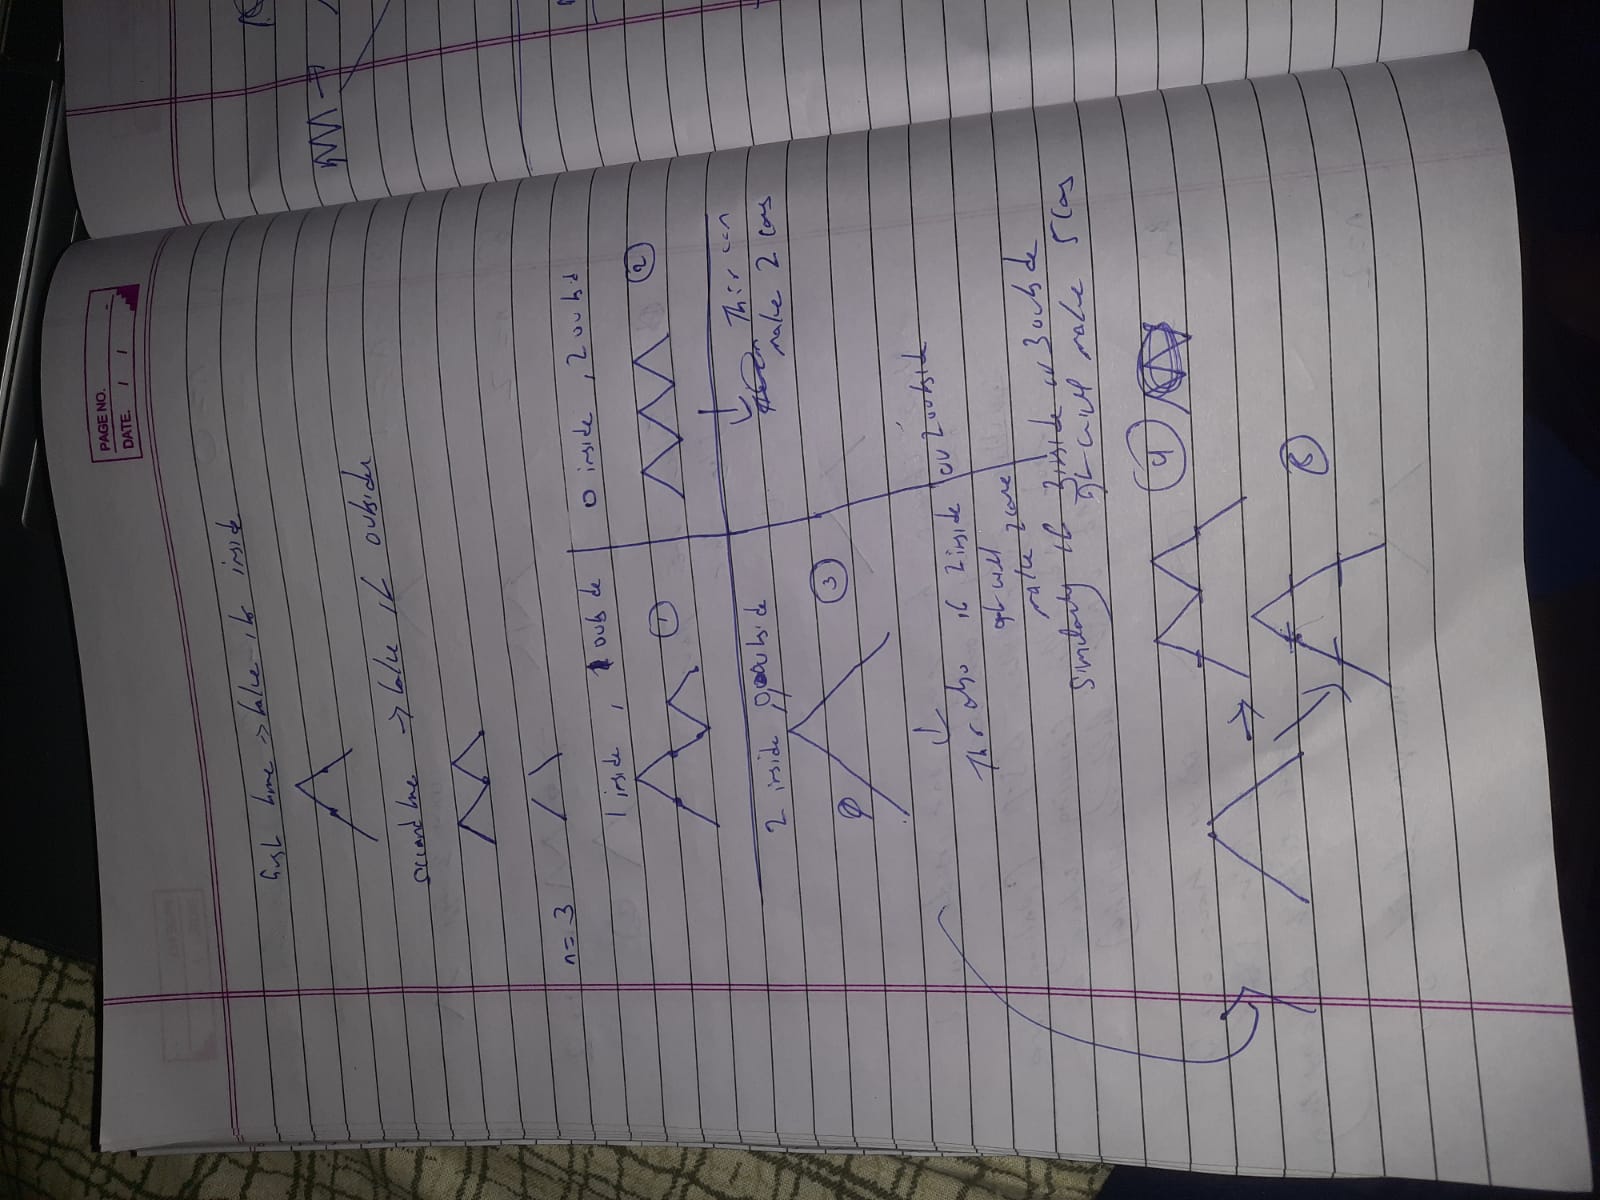 PAGE NO.
DATE. / /
First time → take it inside
Second time → take it outside
n = 3
1 inside, 1 outside
0 inside, 2 outsid
①
②
2 inside, 0 outside
This can
make 2 cas
③
This also if 2 inside or 2 outside
it will
make 2 case
Similarly if 3 inside or 3 outside
It will make 5 Cas
④
⑤